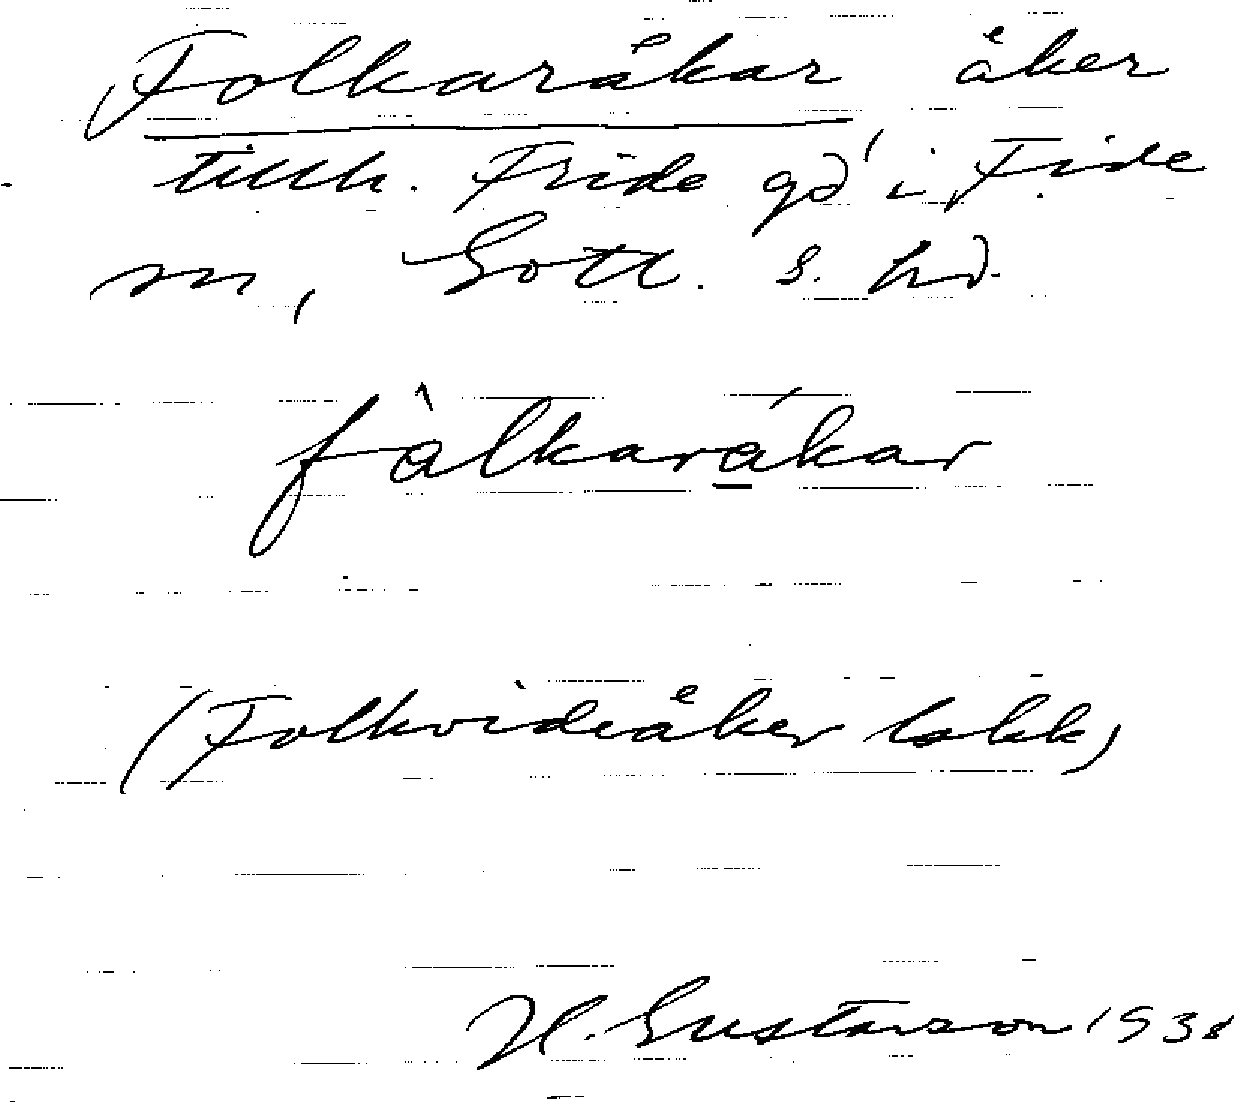 Folkaråkar åker
tillh. Fride gd i Fide
sn, Gotl. s. hd.
fàlkarákar
(Folkvideåker lokk)
H. Gustavson 1938